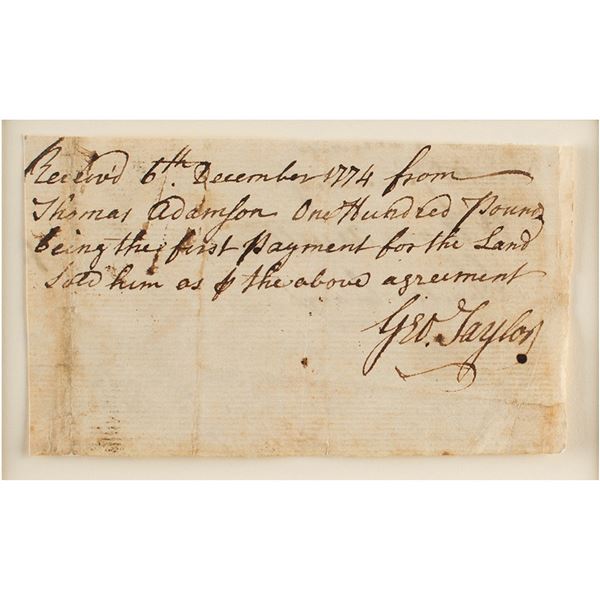 Receiv'd 6th. December 1774 from
Thomas Adamson One Hundred Pounds
being the first Payment for the Land
Sold him as ⅌ the above agreement
Geo. Taylor